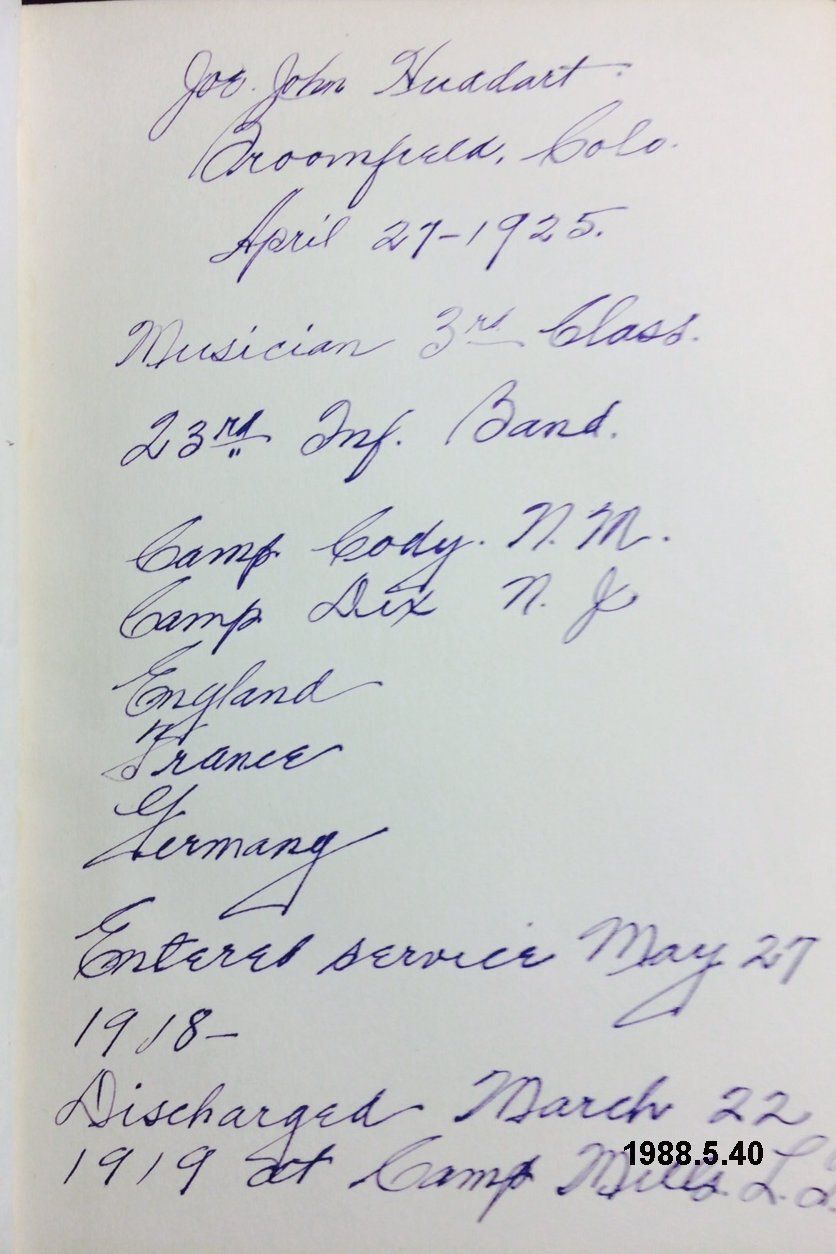 Joe. John Huddart.
Broomfield, Colo.
April 27-1925.
Musician 3rd Class.
23rd Inf. Band.
Camp Cody. N. M.
Camp Dix N. J
England
France
Germany
Entered service May 27
1918-
Discharged March 22
1919 at Camp Mills. L. I.
1988.5.40